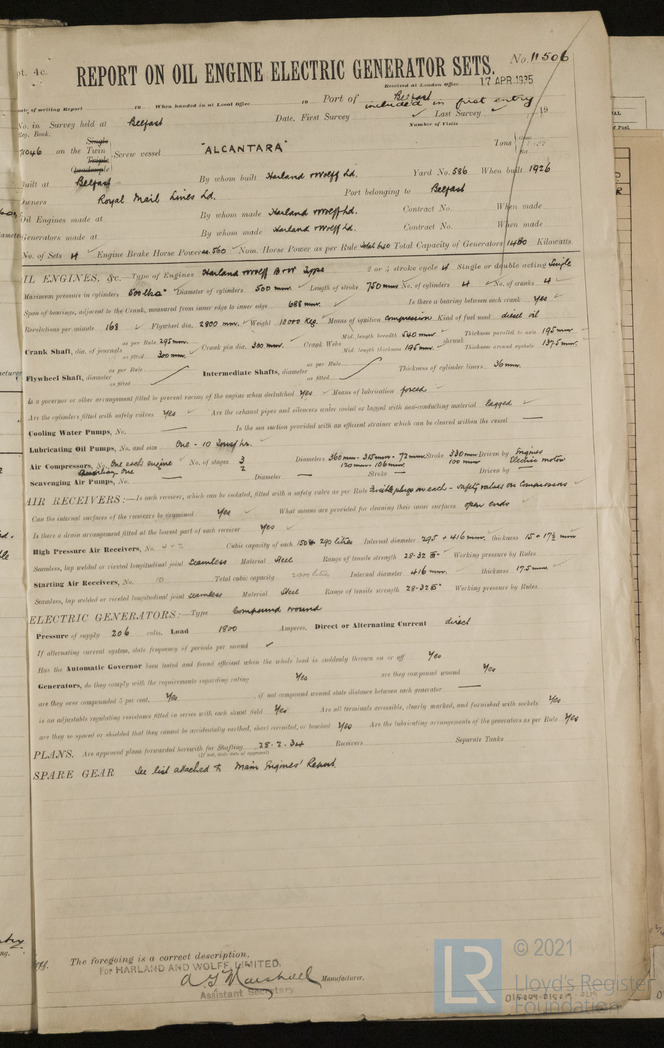 No. 11506
REPORT ON OIL ENGINE ELECTRIC GENERATOR SETS.
Received at London Office 17 APR 1935
Date of writing Report 19 When handed in at Local Office 19 Port of Belfast
No. in Survey held at Belfast Date, First Survey included in first entry Last Survey 19
Reg. Book. Number of Visits
on the Single Twin Triple Quadruple Screw vessel "ALCANTARA" Tons
Built at Belfast By whom built Harland & Wolff Ld. Yard No. 586 When built 1926
Owners Royal Mail Lines Ld. Port belonging to Belfast
Oil Engines made at By whom made Harland & Wolff Ld. Contract No. When made
Generators made at By whom made Harland & Wolff Ld. Contract No. When made
No. of Sets 4 Engine Brake Horse Power 560 Nom. Horse Power as per Rule Total Capacity of Generators 1480 Kilowatts.
OIL ENGINES, &c.—Type of Engines Harland & Wolff B & W Type 2 or 4 stroke cycle 4 Single or double acting Single
Maximum pressure in cylinders 500 lbs □" Diameter of cylinders 500 mm. Length of stroke 750 mm No. of cylinders 4 No. of cranks 4
Span of bearings, adjacent to the Crank, measured from inner edge to inner edge 688 mm. Is there a bearing between each crank Yes
Revolutions per minute 168 Flywheel dia. 2800 mm. Weight 10000 Kg. Means of ignition compression Kind of fuel used diesel oil
Crank Shaft, dia. of journals as per Rule 295 mm. as fitted 300 mm. Crank pin dia. 300 mm. Crank Webs Mid. length breadth 540 mm Mid. length thickness 195 mm. shrunk Thickness parallel to axis 195 mm. Thickness around eyehole 137.5 mm.
Flywheel Shaft, diameter as per Rule as fitted Intermediate Shafts, diameter as per Rule as fitted Thickness of cylinder liners 36 mm.
Is a governor or other arrangement fitted to prevent racing of the engine when declutched Yes Means of lubrication forced
Are the cylinders fitted with safety valves Yes Are the exhaust pipes and silencers water cooled or lagged with non-conducting material lagged
Cooling Water Pumps, No. — Is the sea suction provided with an efficient strainer which can be cleared within the vessel —
Lubricating Oil Pumps, No. and size One - 10 Tons/hr.
Air Compressors, No. One each engine Auxiliary One No. of stages 3 2 Diameters 360 mm - 315 mm - 72 mm 120 mm - 106 mm Stroke 330 mm 100 mm Driven by Engines Electric motor
Scavenging Air Pumps, No. — Diameter — Stroke — Driven by —
AIR RECEIVERS:—Is each receiver, which can be isolated, fitted with a safety valve as per Rule Fusible plugs on each - safety valves on Compressors
Can the internal surfaces of the receivers be examined Yes What means are provided for cleaning their inner surfaces open ends
Is there a drain arrangement fitted at the lowest part of each receiver Yes
High Pressure Air Receivers, No. Cubic capacity of each 150 & 290 litres Internal diameter 295 + 416 mm. thickness 15 + 17½ mm
Seamless, lap welded or riveted longitudinal joint Seamless Material Steel Range of tensile strength 28-32 Working pressure by Rules
Starting Air Receivers, No. 10 Total cubic capacity 2000 litres Internal diameter 416 mm. thickness 17.5 mm
Seamless, lap welded or riveted longitudinal joint seamless Material Steel Range of tensile strength 28-32 Working pressure by Rules
ELECTRIC GENERATORS:—Type Compound wound
Pressure of supply 206 volts. Load 1800 Amperes. Direct or Alternating Current direct
If alternating current system, state frequency of periods per second
Has the Automatic Governor been tested and found efficient when the whole load is suddenly thrown on or off Yes
Generators, do they comply with the requirements regarding rating Yes are they compound wound Yes
are they over compounded 5 per cent. Yes, if not compound wound state distance between each generator —
is an adjustable regulating resistance fitted in series with each shunt field Yes Are all terminals accessible, clearly marked, and furnished with sockets Yes
are they so spaced or shielded that they cannot be accidentally earthed, short circuited, or touched Yes Are the lubricating arrangements of the generators as per Rule Yes
PLANS. Are approved plans forwarded herewith for Shafting 28.2.34 Receivers Separate Tanks
(If not, state date of approval)
SPARE GEAR See list attached to Main Engines' Report
The foregoing is a correct description,
For HARLAND AND WOLFF, LIMITED.
A G Marshall Manufacturer.
Assistant Secretary
LR © 2021
Lloyd's Register
Foundation